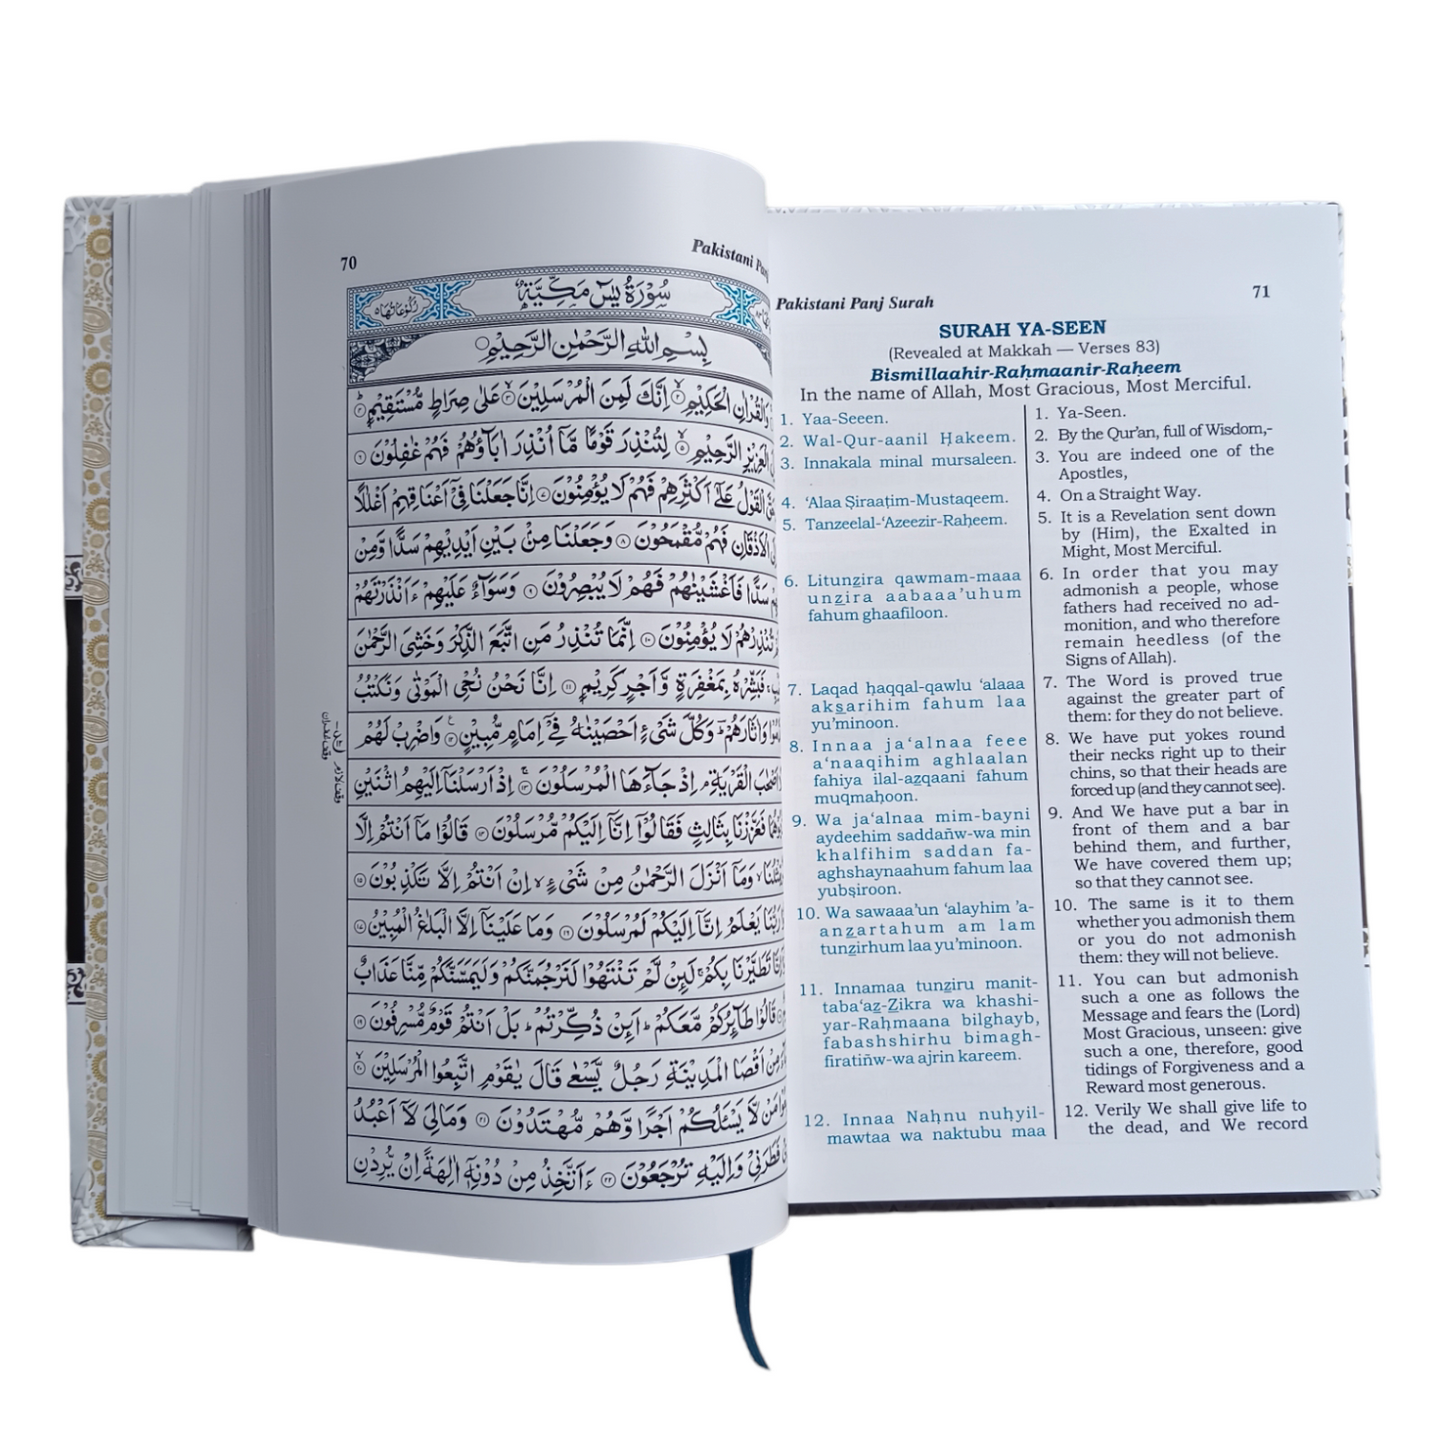 70
Pakistani
سُوْرَةُ يٰسٓ مَكِّيَّةٌ
بِسْمِ اللهِ الرَّحْمٰنِ الرَّحِيْمِ
وَالْقُرْاٰنِ الْحَكِيْمِ ۙ۲ اِنَّكَ لَمِنَ الْمُرْسَلِيْنَ ۙ۳ عَلٰى صِرَاطٍ مُّسْتَقِيْمٍ ؕ۴
الْعَزِيْزِ الرَّحِيْمِ ۙ۵ لِتُنْذِرَ قَوْمًا مَّاۤ اُنْذِرَ اٰبَآؤُهُمْ فَهُمْ غٰفِلُوْنَ ۶
الْقَوْلُ عَلٰۤى اَكْثَرِهِمْ فَهُمْ لَا يُؤْمِنُوْنَ ۷ اِنَّا جَعَلْنَا فِيْۤ اَعْنَاقِهِمْ اَغْلٰلًا
الْاَذْقَانِ فَهُمْ مُّقْمَحُوْنَ ۸ وَجَعَلْنَا مِنْۢ بَيْنِ اَيْدِيْهِمْ سَدًّا وَّمِنْ
سَدًّا فَاَغْشَيْنٰهُمْ فَهُمْ لَا يُبْصِرُوْنَ ۹ وَسَوَآءٌ عَلَيْهِمْ ءَاَنْذَرْتَهُمْ
تُنْذِرْهُمْ لَا يُؤْمِنُوْنَ ۱۰ اِنَّمَا تُنْذِرُ مَنِ اتَّبَعَ الذِّكْرَ وَخَشِيَ الرَّحْمٰنَ
فَبَشِّرْهُ بِمَغْفِرَةٍ وَّاَجْرٍ كَرِيْمٍ ۱۱ اِنَّا نَحْنُ نُحْيِ الْمَوْتٰى وَنَكْتُبُ
وَاٰثَارَهُمْ ؕ وَكُلَّ شَيْءٍ اَحْصَيْنٰهُ فِيْۤ اِمَامٍ مُّبِيْنٍ ۱۲ وَاضْرِبْ لَهُمْ
اَصْحٰبَ الْقَرْيَةِ ۘ اِذْ جَآءَهَا الْمُرْسَلُوْنَ ۱۳ اِذْ اَرْسَلْنَاۤ اِلَيْهِمُ اثْنَيْنِ
فَعَزَّزْنَا بِثَالِثٍ فَقَالُوْۤا اِنَّاۤ اِلَيْكُمْ مُّرْسَلُوْنَ ۱۴ قَالُوْا مَاۤ اَنْتُمْ اِلَّا
وَمَاۤ اَنْزَلَ الرَّحْمٰنُ مِنْ شَيْءٍ ۙ اِنْ اَنْتُمْ اِلَّا تَكْذِبُوْنَ ۱۵
رَبُّنَا يَعْلَمُ اِنَّاۤ اِلَيْكُمْ لَمُرْسَلُوْنَ ۱۶ وَمَا عَلَيْنَاۤ اِلَّا الْبَلٰغُ الْمُبِيْنُ ۱۷
تَطَيَّرْنَا بِكُمْ ۚ لَئِنْ لَّمْ تَنْتَهُوْا لَنَرْجُمَنَّكُمْ وَلَيَمَسَّنَّكُمْ مِّنَّا عَذَابٌ
قَالُوْا طَآئِرُكُمْ مَّعَكُمْ ؕ اَئِنْ ذُكِّرْتُمْ ؕ بَلْ اَنْتُمْ قَوْمٌ مُّسْرِفُوْنَ ۱۹
مِنْ اَقْصَا الْمَدِيْنَةِ رَجُلٌ يَّسْعٰى قَالَ يٰقَوْمِ اتَّبِعُوا الْمُرْسَلِيْنَ ۙ۲۰
مَنْ لَّا يَسْـَٔلُكُمْ اَجْرًا وَّهُمْ مُّهْتَدُوْنَ ۲۱ وَمَا لِيَ لَاۤ اَعْبُدُ
فَطَرَنِيْ وَاِلَيْهِ تُرْجَعُوْنَ ۲۲ ءَاَتَّخِذُ مِنْ دُوْنِهٖۤ اٰلِهَةً اِنْ يُّرِدْنِ
Pakistani Panj Surah
71
SURAH YA-SEEN
(Revealed at Makkah — Verses 83)
Bismillaahir-Raḥmaanir-Raḥeem
In the name of Allah, Most Gracious, Most Merciful.
1. Yaa-Seeen.
2. Wal-Qur-aanil Ḥakeem.
3. Innakala minal mursaleen.
4. ‘Alaa Ṣiraaṭim-Mustaqeem.
5. Tanzeelal-‘Azeezir-Raḥeem.
6. Litunzira qawmam-maaa
unzira aabaaa’uhum
fahum ghaafiloon.
7. Laqad ḥaqqal-qawlu ‘alaaa
aksarihim fahum laa
yu’minoon.
8. Innaa ja‘alnaa feee
a‘naaqihim aghlaalan
fahiya ilal-azqaani fahum
muqmaḥoon.
9. Wa ja‘alnaa mim-bayni
aydeehim saddañw-wa min
khalfihim saddan fa-
aghshaynaahum fahum laa
yubṣiroon.
10. Wa sawaaa’un ‘alayhim ’a-
anzartahum am lam
tunzirhum laa yu’minoon.
11. Innamaa tunziru manit-
taba‘az-Zikra wa khashi-
yar-Raḥmaana bilghayb,
fabashshirhu bimagh-
firatiñw-wa ajrin kareem.
12. Innaa Naḥnu nuḥyil-
mawtaa wa naktubu maa
1. Ya-Seen.
2. By the Qur’an, full of Wisdom,-
3. You are indeed one of the
Apostles,
4. On a Straight Way.
5. It is a Revelation sent down
by (Him), the Exalted in
Might, Most Merciful.
6. In order that you may
admonish a people, whose
fathers had received no ad-
monition, and who therefore
remain heedless (of the
Signs of Allah).
7. The Word is proved true
against the greater part of
them: for they do not believe.
8. We have put yokes round
their necks right up to their
chins, so that their heads are
forced up (and they cannot see).
9. And We have put a bar in
front of them and a bar
behind them, and further,
We have covered them up;
so that they cannot see.
10. The same is it to them
whether you admonish them
or you do not admonish
them: they will not believe.
11. You can but admonish
such a one as follows the
Message and fears the (Lord)
Most Gracious, unseen: give
such a one, therefore, good
tidings of Forgiveness and a
Reward most generous.
12. Verily We shall give life to
the dead, and We record